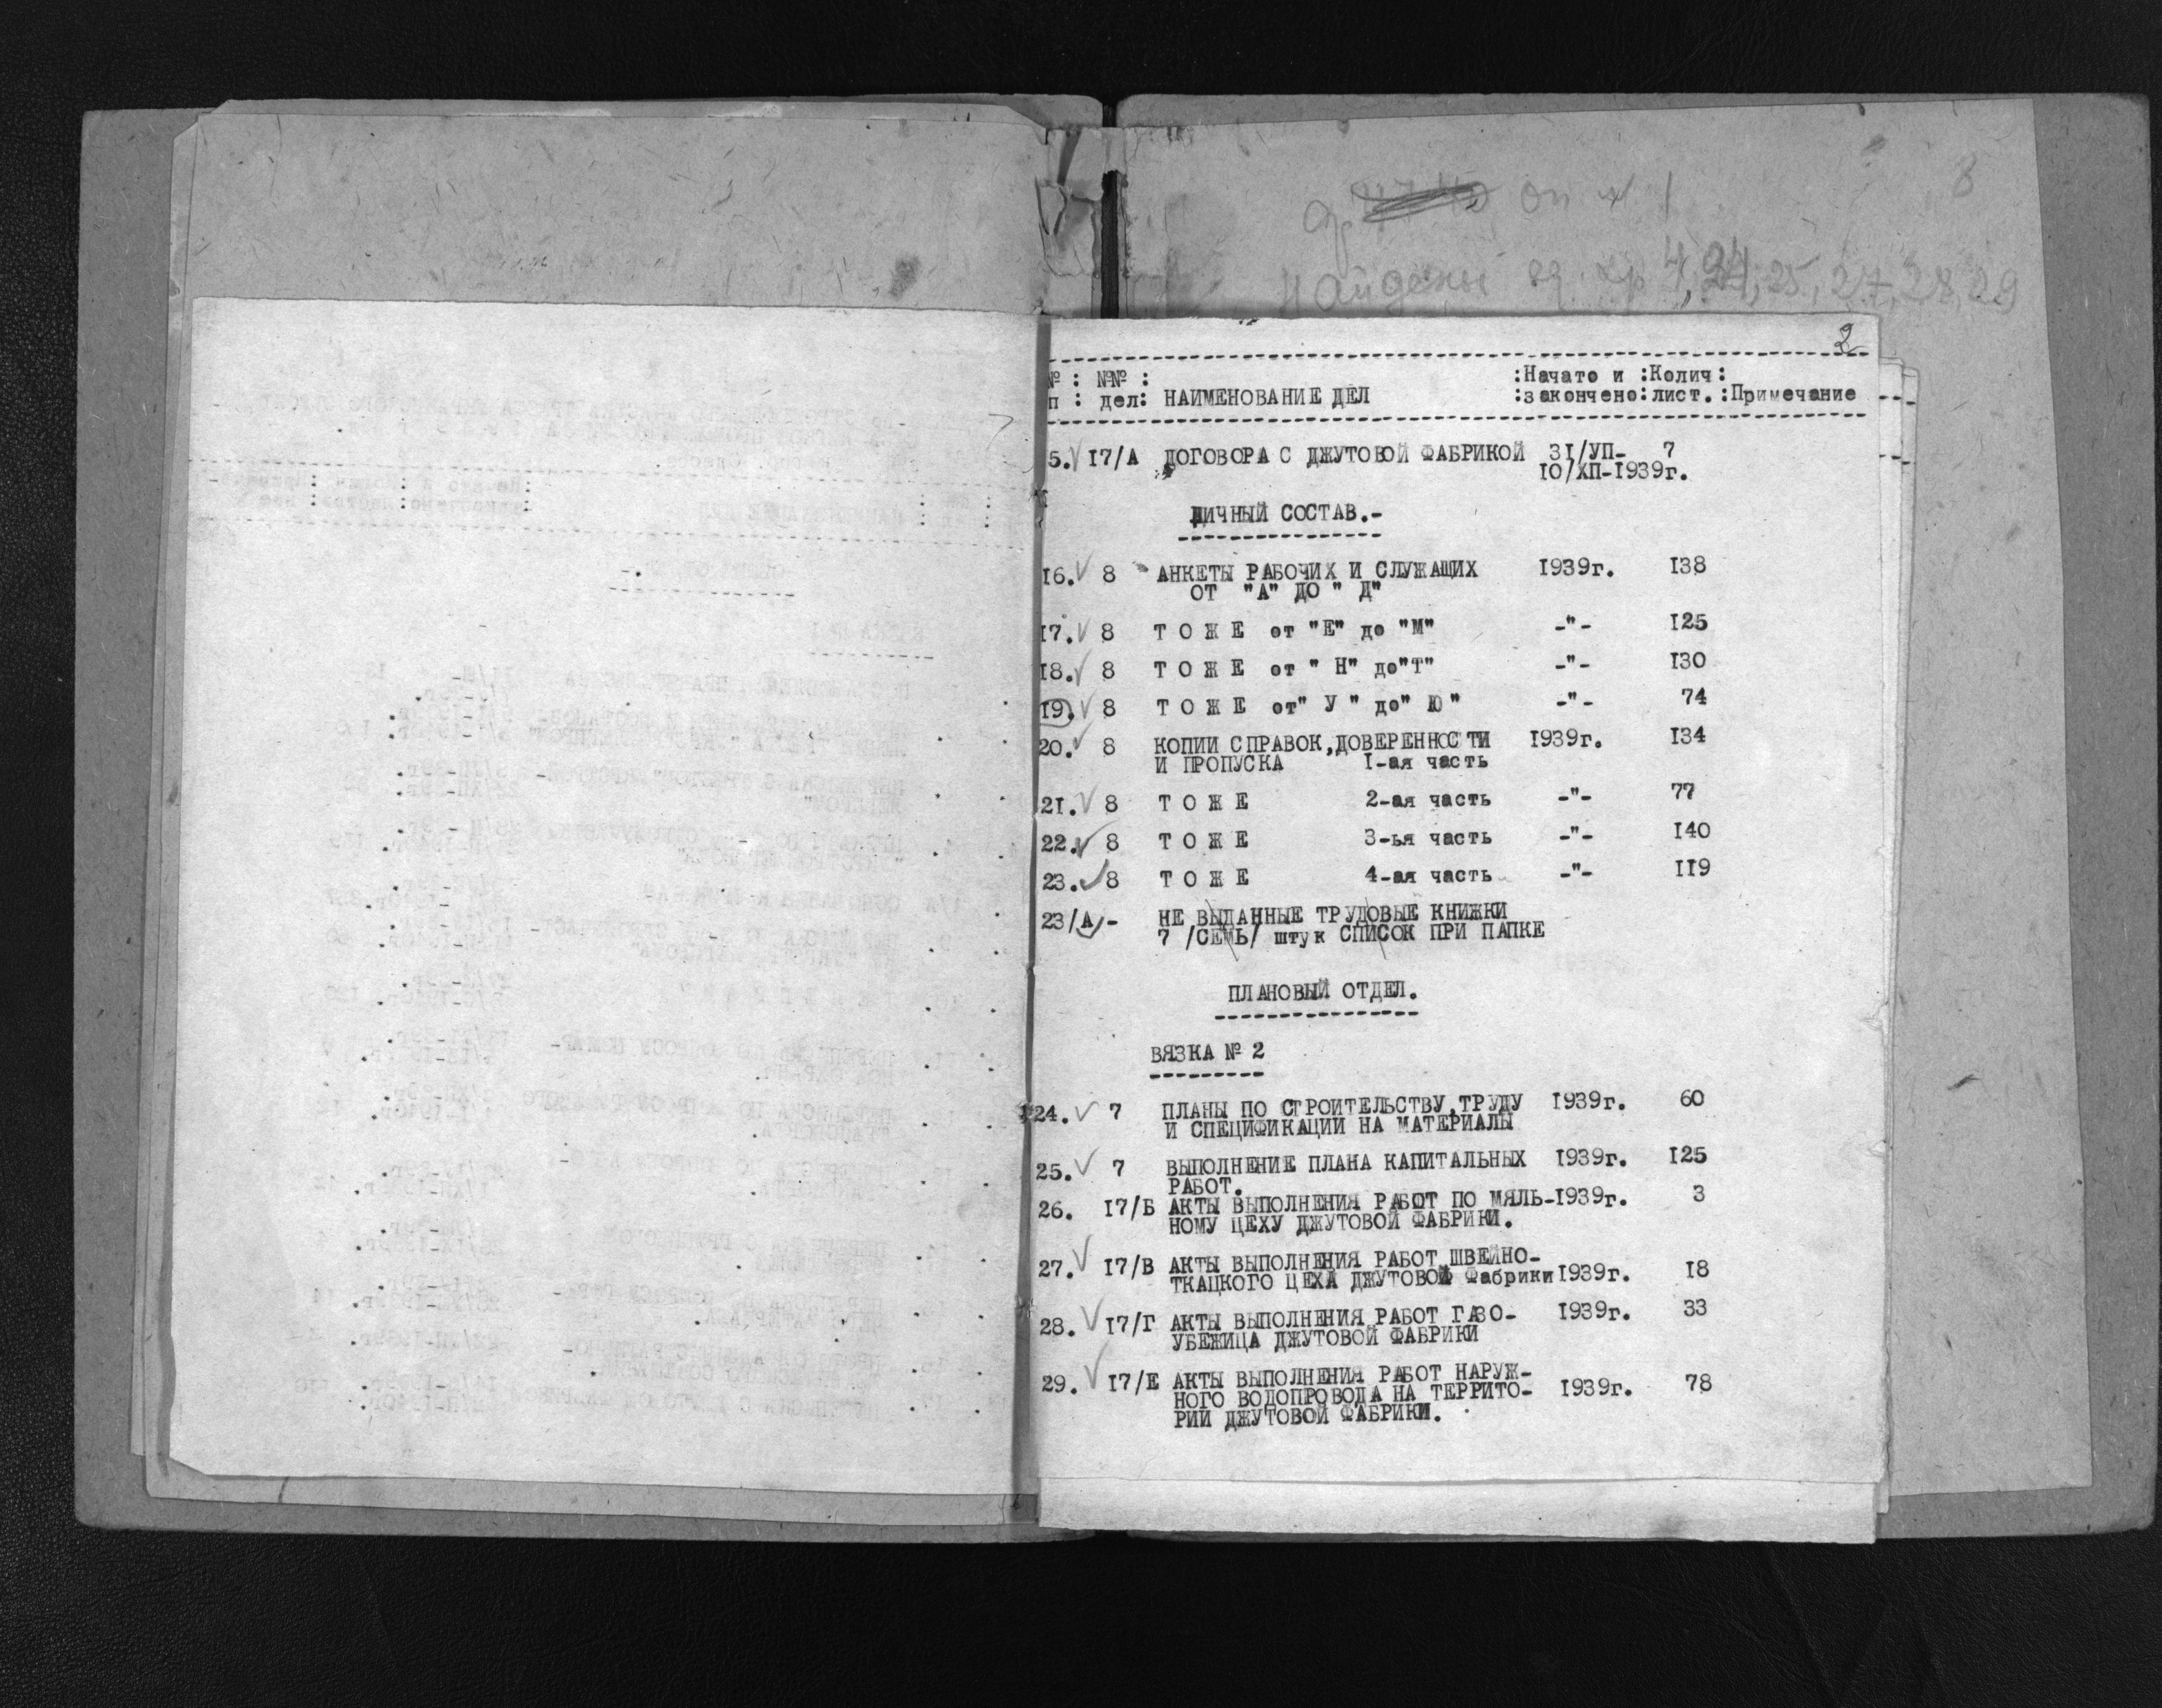 8
оп № 1
Найдены ед. хр 4, 24, 25, 27, 28, 29
2
№ : №№ : :Начато и :Колич:
п : дел: НАИМЕНОВАНИЕ ДЕЛ :закончено:лист. :Примечание
5. 17/А ДОГОВОРА С ДЖУТОВОЙ ФАБРИКОЙ 31/УП- 7
10/ХП-1939г.
ЛИЧНЫЙ СОСТАВ.-
16. 8 АНКЕТЫ РАБОЧИХ И СЛУЖАЩИХ 1939г. 138
ОТ "А" ДО " Д"
17. 8 Т О Ж Е от "Е" до "М" -"- 125
18. 8 Т О Ж Е от " Н" до"Т" -"- 130
19. 8 Т О Ж Е от" У " до" Ю " -"- 74
20. 8 КОПИИ СПРАВОК,ДОВЕРЕННОСТИ 1939г. 134
И ПРОПУСКА I-ая часть
21. 8 Т О Ж Е 2-ая часть -"- 77
22. 8 Т О Ж Е 3-ья часть -"- 140
23. 8 Т О Ж Е 4-ая часть -"- 119
23/А/- НЕ ВЫДАННЫЕ ТРУДОВЫЕ КНИЖКИ
7 /СЕМЬ/ штук СПИСОК ПРИ ПАПКЕ
ПЛАНОВЫЙ ОТДЕЛ.
ВЯЗКА № 2
24. 7 ПЛАНЫ ПО СТРОИТЕЛЬСТВУ,ТРУДУ 1939г. 60
И СПЕЦИФИКАЦИИ НА МАТЕРИАЛЫ
25. 7 ВЫПОЛНЕНИЕ ПЛАНА КАПИТАЛЬНЫХ 1939г. 125
РАБОТ.
26. 17/Б АКТЫ ВЫПОЛНЕНИЯ РАБОТ ПО МЯЛЬ-1939г. 3
НОМУ ЦЕХУ ДЖУТОВОЙ ФАБРИКИ.
27. 17/В АКТЫ ВЫПОЛНЕНИЯ РАБОТ ШВЕЙНО-
ТКАЦКОГО ЦЕХА ДЖУТОВОЙ Фабрики 1939г. 18
28. 17/Г АКТЫ ВЫПОЛНЕНИЯ РАБОТ ГАЗО- 1939г. 33
УБЕЖИЦА ДЖУТОВОЙ ФАБРИКИ
29. 17/Е АКТЫ ВЫПОЛНЕНИЯ РАБОТ НАРУЖ-
НОГО ВОДОПРОВОДА НА ТЕРРИТО- 1939г. 78
РИИ ДЖУТОВОЙ ФАБРИКИ.